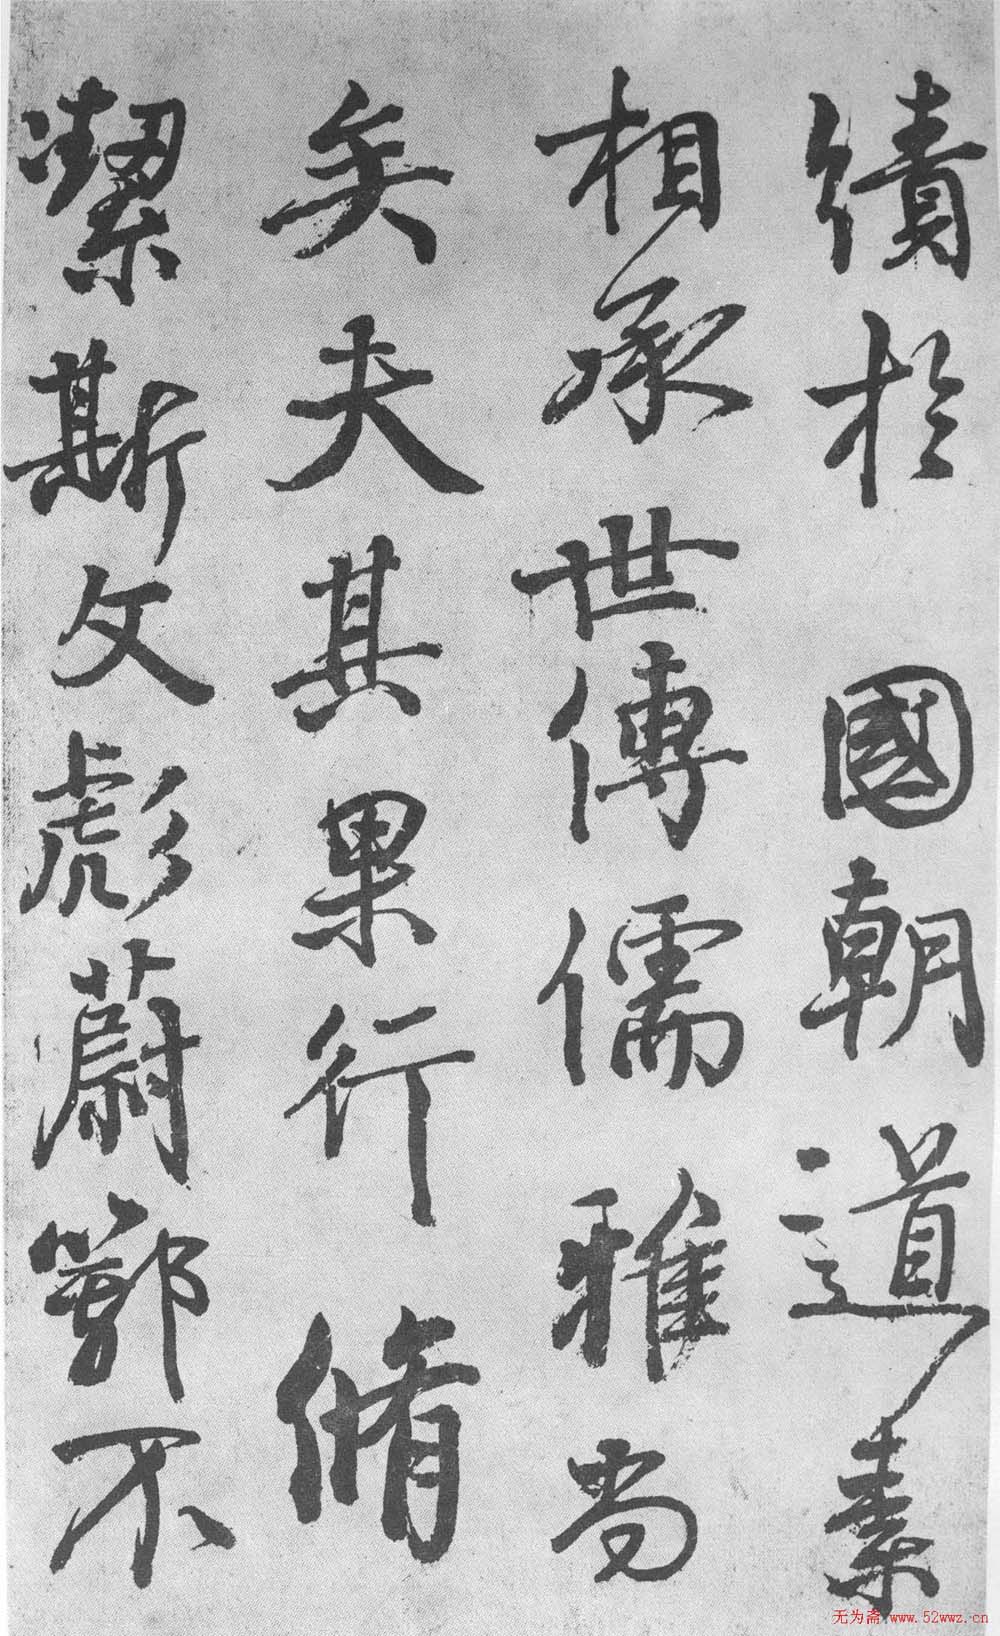 績於 國朝道素
相承世傳儒雅尚
矣夫其果行脩
潔斯文彪蔚鄂不
无为斋 www.52wwz.cn